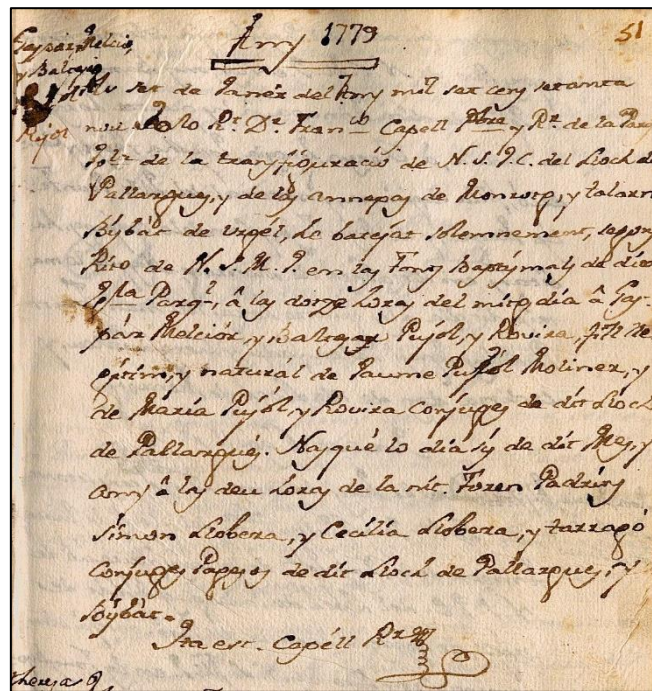 Any 1779
51
Gaspár, Melció,
y Baltasár
Pujól
Als set de Janér del Any mil set cens setanta
nou: Jo lo Rt. Dr. Franco. Capell Pbre. y Rr. de la Parql.
Iglª. de la transfiguració de N. S. J. C. del Lloch de
Pallargues, y de las annexas de Monroig, y
Bisbat de Urgél, he batejat solemnement, segons
Rito de N. S. M. I. en las Fonts Baptismals de dita
Iglª Parql., â las dotze horas del mitg dia â Gas-
pár Melciór, y Baltasar Pujól, y Rovira, fill lle-
gitim, y naturál de Jaume Pujól Moliner, y
de María Pujól, y Rovira conjuges de dit Lloch
de Pallargues. Nasqué lo dia sis de dit Mes, y
any â las deu horas de la nit. Foren Padrins
Simon Llobera, y Cecilia Llobera, y tarragó
conjuges Pagesos de dit Lloch de Pallargues, y
Bisbát.
Ita est. Capéll Rr.
Theresa